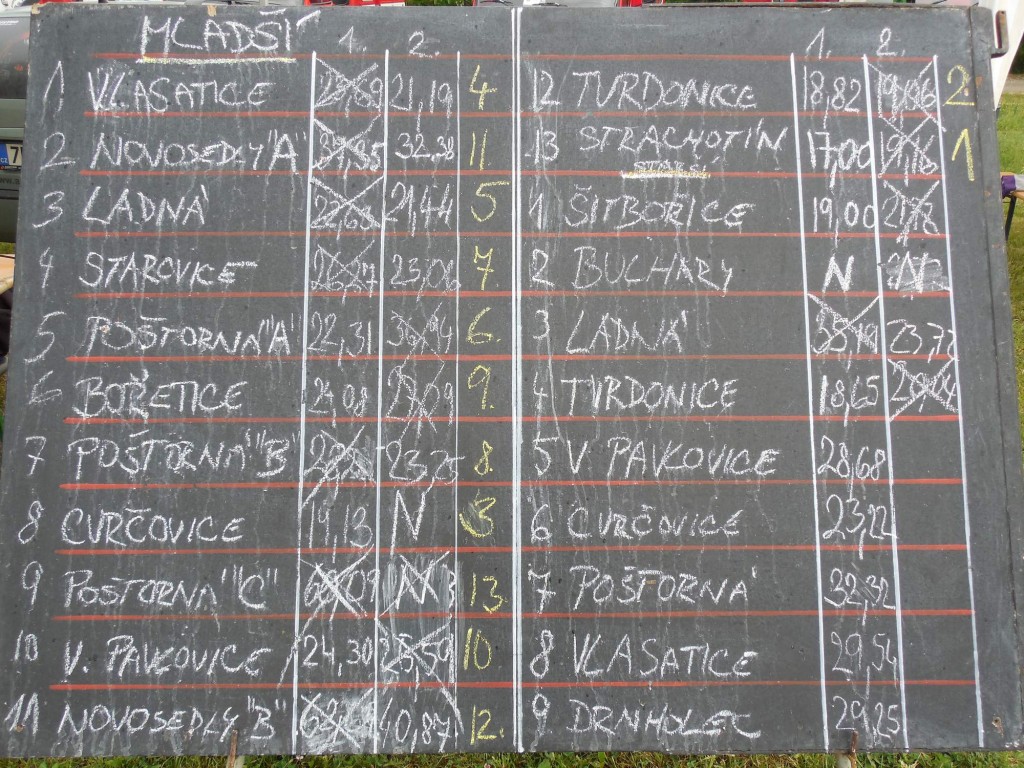 MLADŠÍ 1. 2.
1 VLASATICE 21,19 4
2 NOVOSEDLY "A" 32,38 11.
3 LADNÁ 21,44 5
4 STAROVICE 7.
5 POŠTORNÁ "A" 22,31 6.
6 BOŘETICE 24,08 9.
7 POŠTORNÁ "B" 23,25 8.
8 CVRČOVICE 19,13 N 3
9 POŠTORNÁ "C" 13.
10 V. PAVLOVICE 24,30 10
11 NOVOSEDLY "B" 40,87 12.
1. 2.
12 TVRDONICE 18,82 2
13 STRACHOTÍN 17,00 1
1 ŠITBOŘICE 19,00
2 BUCHARY N N
3 LADNÁ 23,72
4 TVRDONICE 18,65
5 V PAVKOVICE 28,68
6 CVRČOVICE 23,22
7 POŠTORNÁ 32,32
8 VLASATICE 29,54
9 DRNHOLEC 29,25